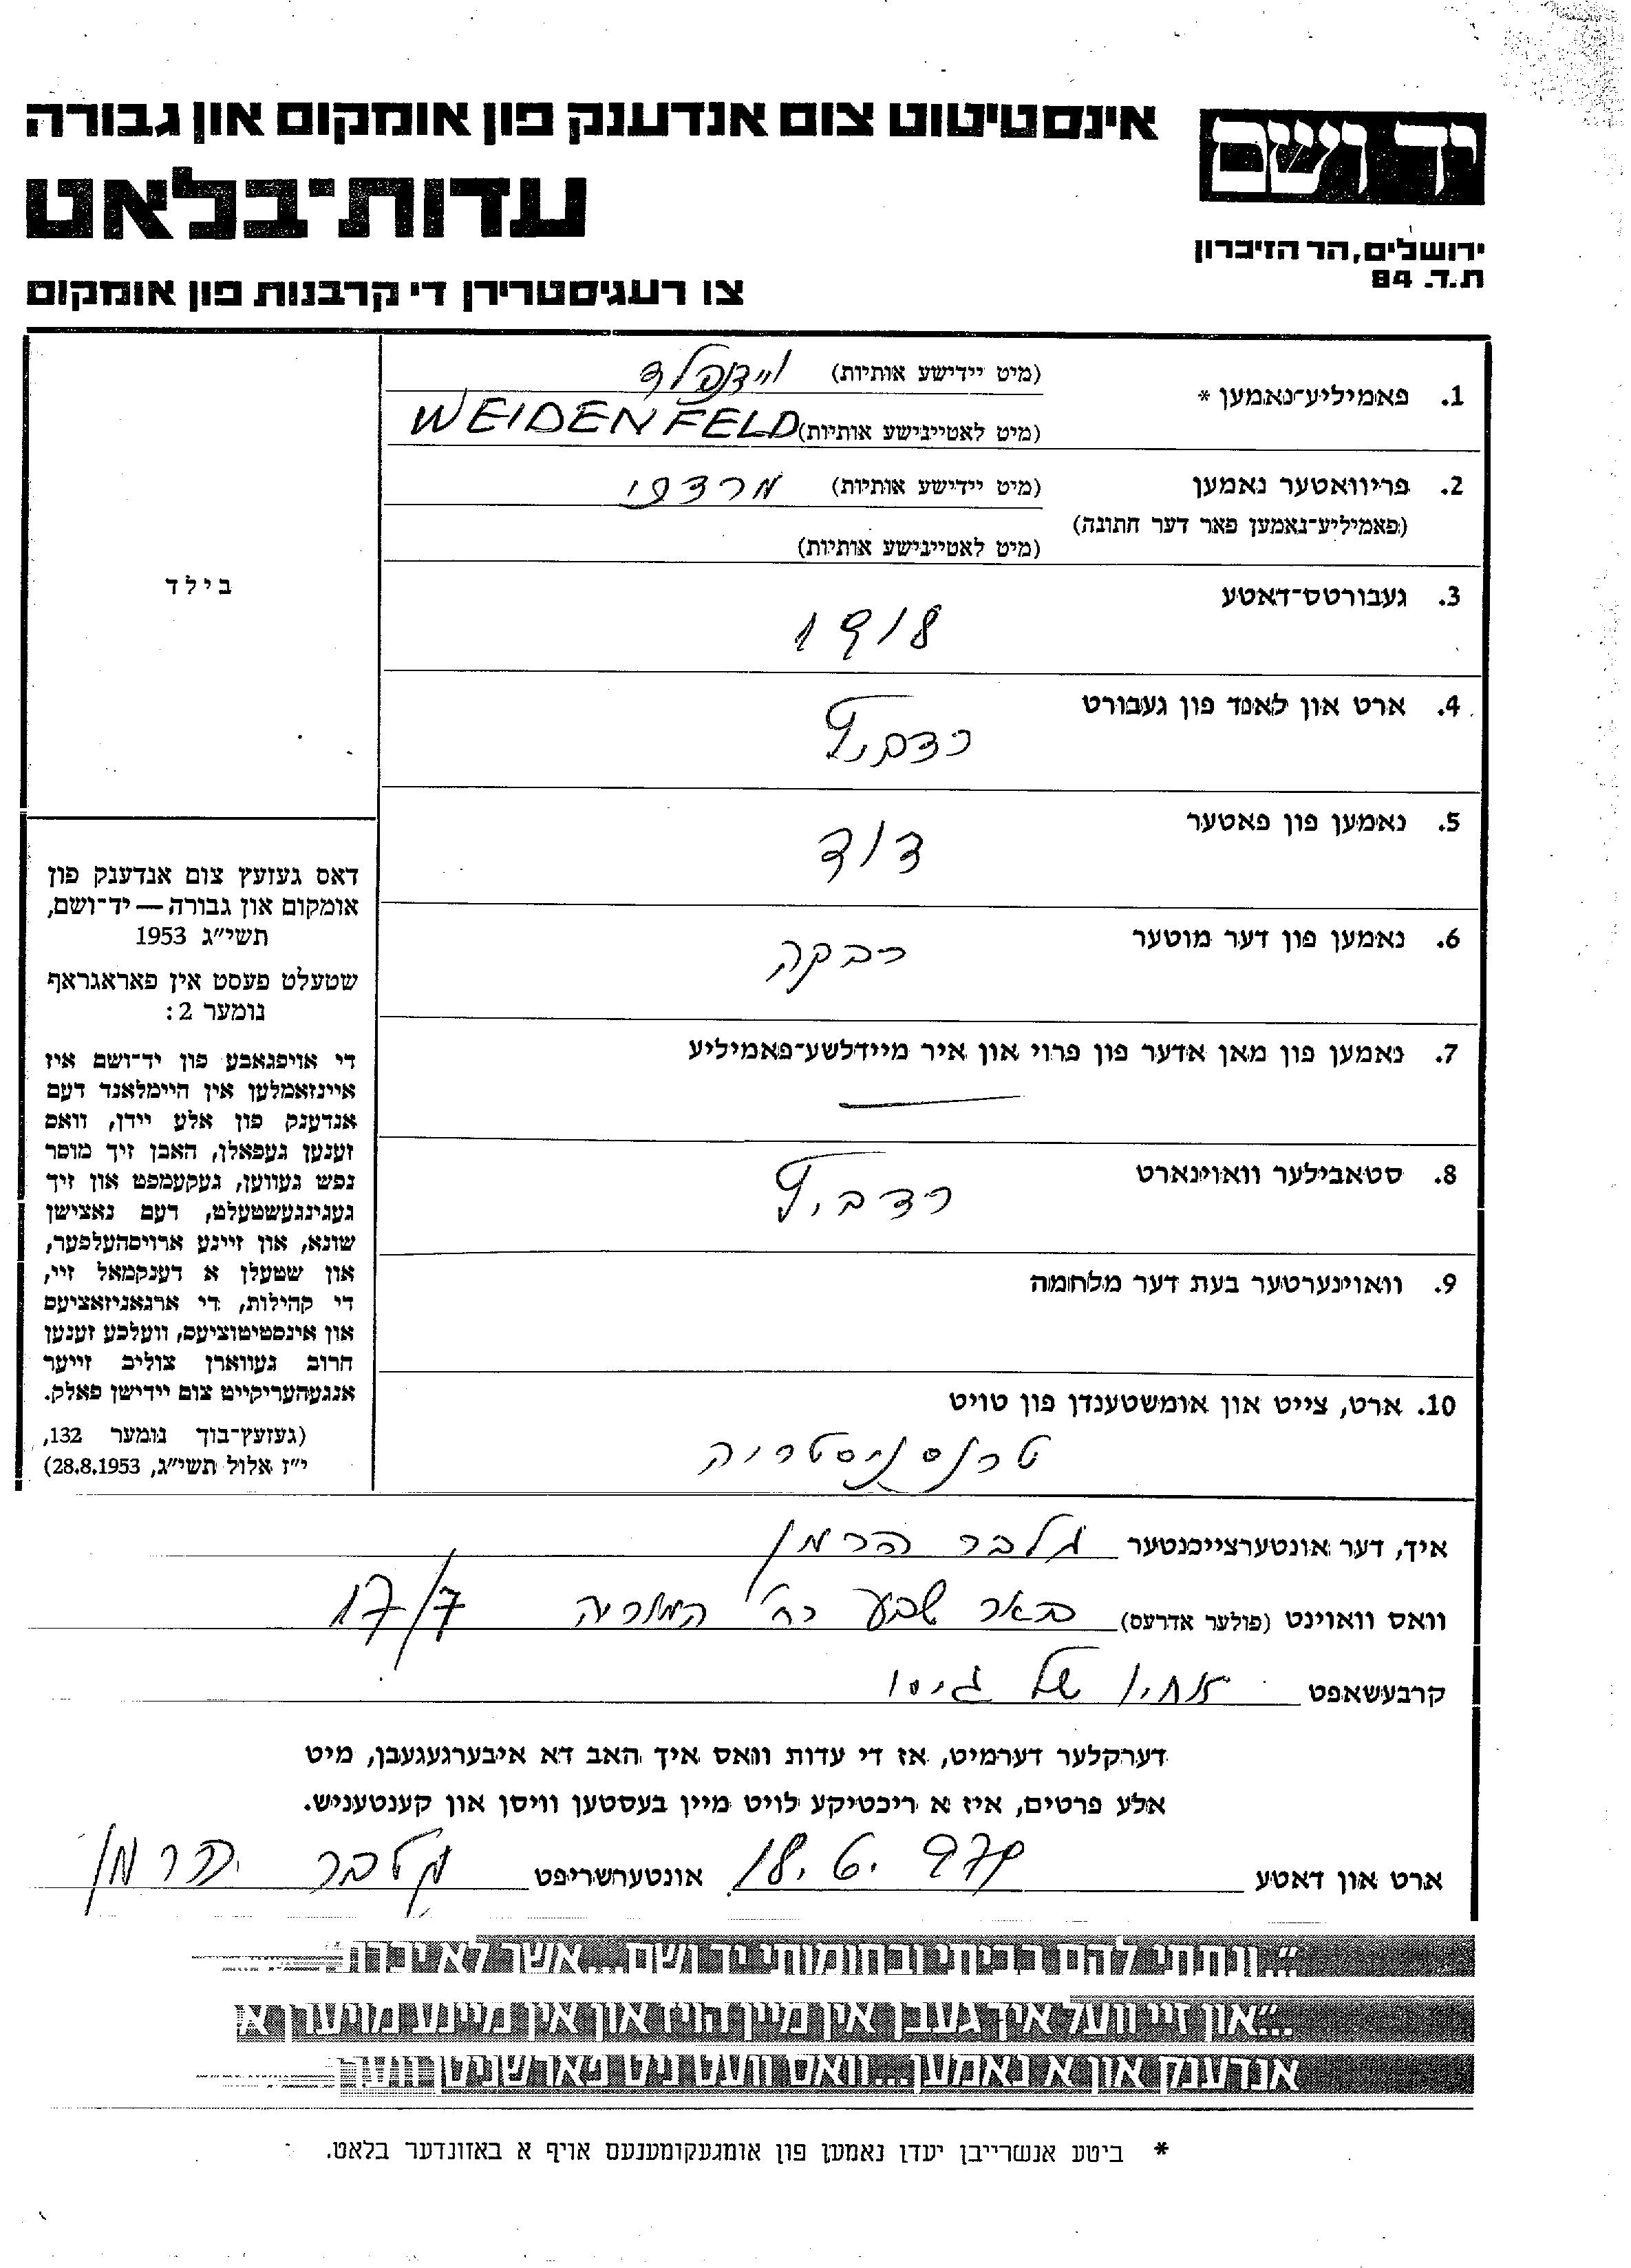 אינסטיטוט צום אנדענק פון אומקום און גבורה
יד ושם
עדות־בלאט
ירושלים, הר הזיכרון
ת.ד. 84
צו רעגיסטרירן די קרבנות פון אומקום
1. פאמיליע־נאמען *
(מיט יידישע אותיות) ויידנפלד
(מיט לאטיינישע אותיות) WEIDENFELD
2. פריוואטער נאמען
(פאמיליע־נאמען פאר דער חתונה)
(מיט יידישע אותיות) מרדכי
(מיט לאטיינישע אותיות)
3. געבורטס־דאטע
1918
4. ארט און לאנד פון געבורט
רדביץ
5. נאמען פון פאטער
דוד
6. נאמען פון דער מוטער
רבקה
7. נאמען פון מאן אדער פון פרוי און איר מיידלשע־פאמיליע
8. סטאבילער וואוינארט
רדביץ
9. וואוינערטער בעת דער מלחמה
10. ארט, צייט און אומשטענדן פון טויט
טרנסניסטריה
בילד
דאס געזעץ צום אנדענק פון
אומקום און גבורה — יד־ושם,
תשי"ג 1953
שטעלט פעסט אין פאראגראף
נומער 2:
די אויפגאבע פון יד־ושם איז
איינזאמלען אין היימלאנד דעם
אנדענק פון אלע יידן, וואס
זענען געפאלן, האבן זיך מוסר
נפש געווען, געקעמפט און זיך
געגינגעשטעלט, דעם נאצישן
שונא, און זיינע ארויסהעלפער,
און שטעלן א דענקמאל זיי,
די קהילות, די ארגאניזאציעס
און אינסטיטוציעס, וועלכע זענען
חרוב געווארן צוליב זייער
אנגעהעריקייט צום יידישן פאלק.
(געזעץ־בוך נומער 132,
י"ז אלול תשי"ג, 28.8.1953)
איך, דער אונטערצייכנטער גלבר הרמן
וואס וואוינט (פולער אדרעס) באר שבע רח' המוריה 17/7
קרבעשאפט אחיו של גיסו
דערקלער דערמיט, אז די עדות וואס איך האב דא איבערגעגעבן, מיט
אלע פרטים, איז א ריכטיקע לויט מיין בעסטען וויסן און קענטעניש.
ארט און דאטע 18.6. אונטערשריפט גלבר הרמן
"...ונתתי להם בביתי ובחומותי יד ושם...אשר לא יכרת"
"...און זיי וועל איך געבן אין מיין הויז און אין מיינע מויערן א
אנדענק און א נאמען...וואס וועט ניט פארשניטן ווערן
* ביטע אנשרייבן יעדן נאמען פון אומגעקומענעם אויף א באזונדער בלאט.